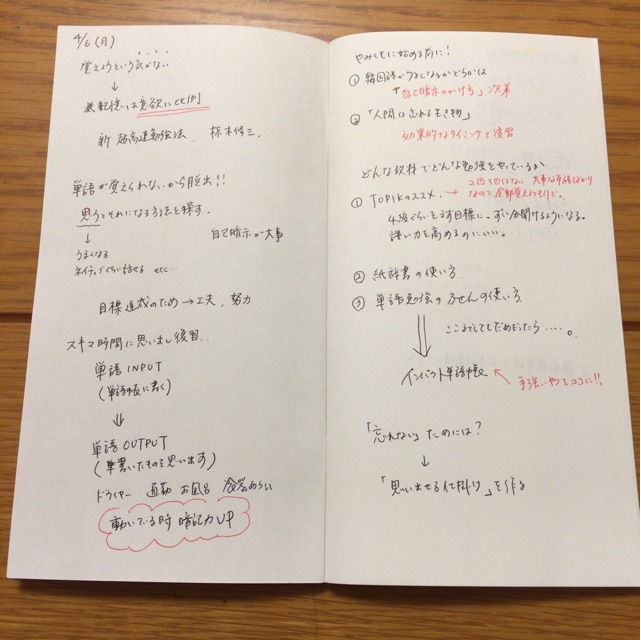 4/6(月)
覚えようという気がない
↓
記憶は意欲に比例
新 超高速勉強法 椋木修三.
単語が覚えられないから脱出!!
思うとそれになる方法を探す.
↓
自己暗示が大事
うまくなる
ネイティブぐらい話せる etc…
目標達成のため→工夫.努力
スキマ時間に思い出し復習..
単語 INPUT
(単語帳に書く)
⇓
単語 OUTPUT
(書いたものを思い出す)
ドライヤー 通勤 お風呂 食器あらい
動いている時 暗記力UP
やみくもに始める前に!
① 韓国語がうまくなるかどうかは
「自己暗示のかけ方」次第
② 「人間は忘れる生き物」
効果的なタイミングで復習
どんな教材でどんな勉強をやっているか
① TOPIKのススメ. → 2回3回はない 大事な単語ばかり
なので全部覚えるつもりで。
4級ぐらいをまず目標に。ずい分聞けるようになる。
読い力を高めるのにいい。
② 紙辞書の使い方.
③ 単語勉強のふせんの使い方.
ここまでしてもだめだったら・・・・。
⇓
インパクト単語帳 ← 手強いやつをココに!!
「忘れない」ためには?
↓
「思い出せる仕掛け」を作る